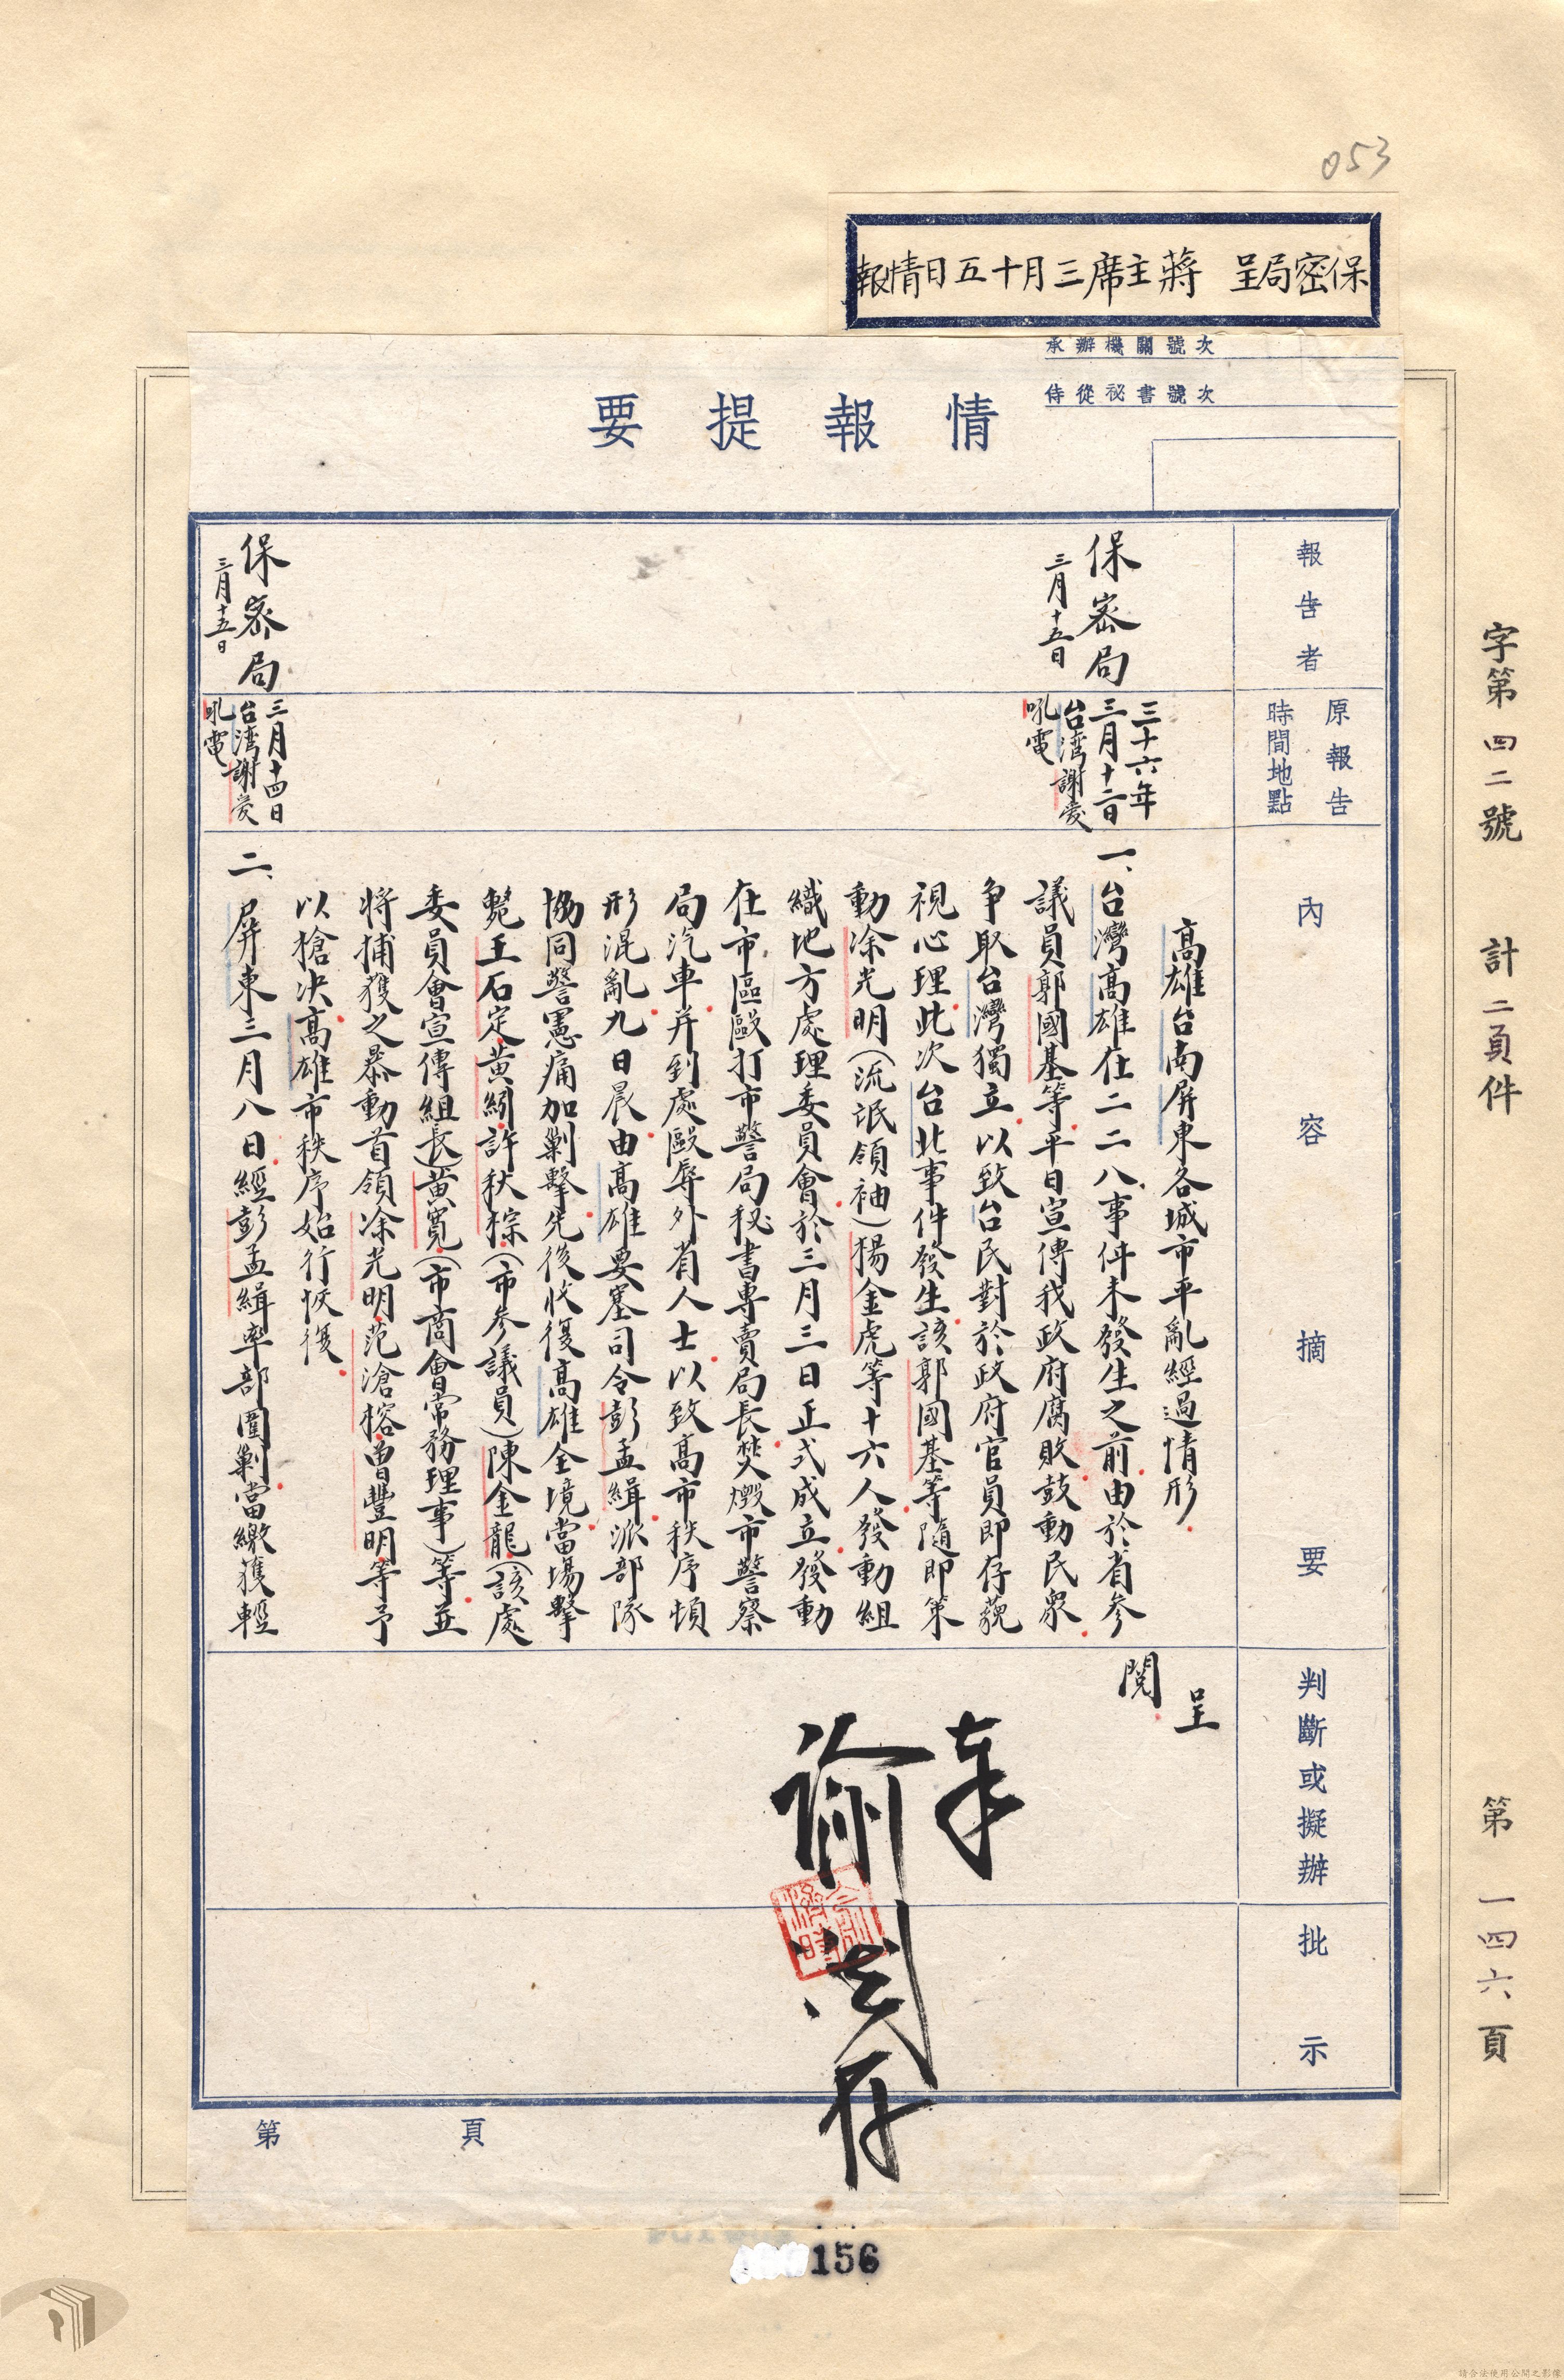 053
保密局呈　蔣主席三月十五日情報
承辦機關號次
侍從秘書號次
情報提要
報告者
原報告
時間地點
內容摘要
判斷或擬辦
批示
保密局
三月十五日
三十六年
三月十二日
台灣謝愛
吼電
高雄台南屏東各城市平亂經過情形.
一、台灣高雄在二二八事件未發生之前.由於省參
議員郭國基等平日宣傳我政府腐敗鼓動民衆.
爭取台灣獨立.以致台民對於政府官員即存藐
視心理.此次台北事件發生.該郭國基等隨即策
動凃光明(流氓領袖)楊金虎等十六人.發動組
織地方處理委員會.於三月三日正式成立.發動
在市區毆打市警局秘書專賣局長.焚燬市警察
局汽車.并到處毆辱外省人士.以致高市秩序頓
形混亂.九日晨.由高雄要塞司令彭孟緝.派部隊
協同警憲痛加剿擊.先後收復高雄全境.當場擊
斃王石定.黃綱.許秋棕.(市參議員)陳金龍.(該處
委員會宣傳組長)黃寬.(市商會常務理事)等.並
將捕獲之暴動首領凃光明.范滄榕.曾豐明等予
以槍決.高雄市秩序始行恢復.
保密局
三月十五日
三月十四日
台灣謝愛
吼電
二、屏東三月八日.經彭孟緝率部圍剿.當繳獲輕
呈
閱.
奉
諭
閱
存
第　頁
字第四二號　計二頁件　第一四六頁
156
請合法使用公開之影像